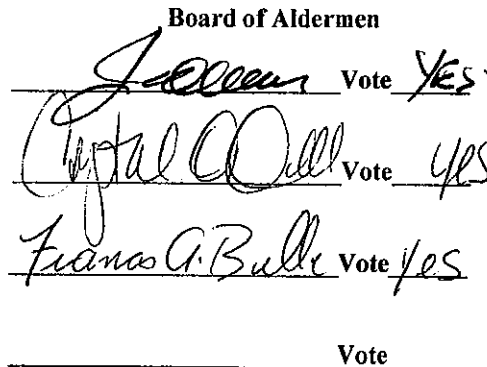 Board of Aldermen
Vote YES
Crystal Vote yes
Francis A. Vote yes
Vote